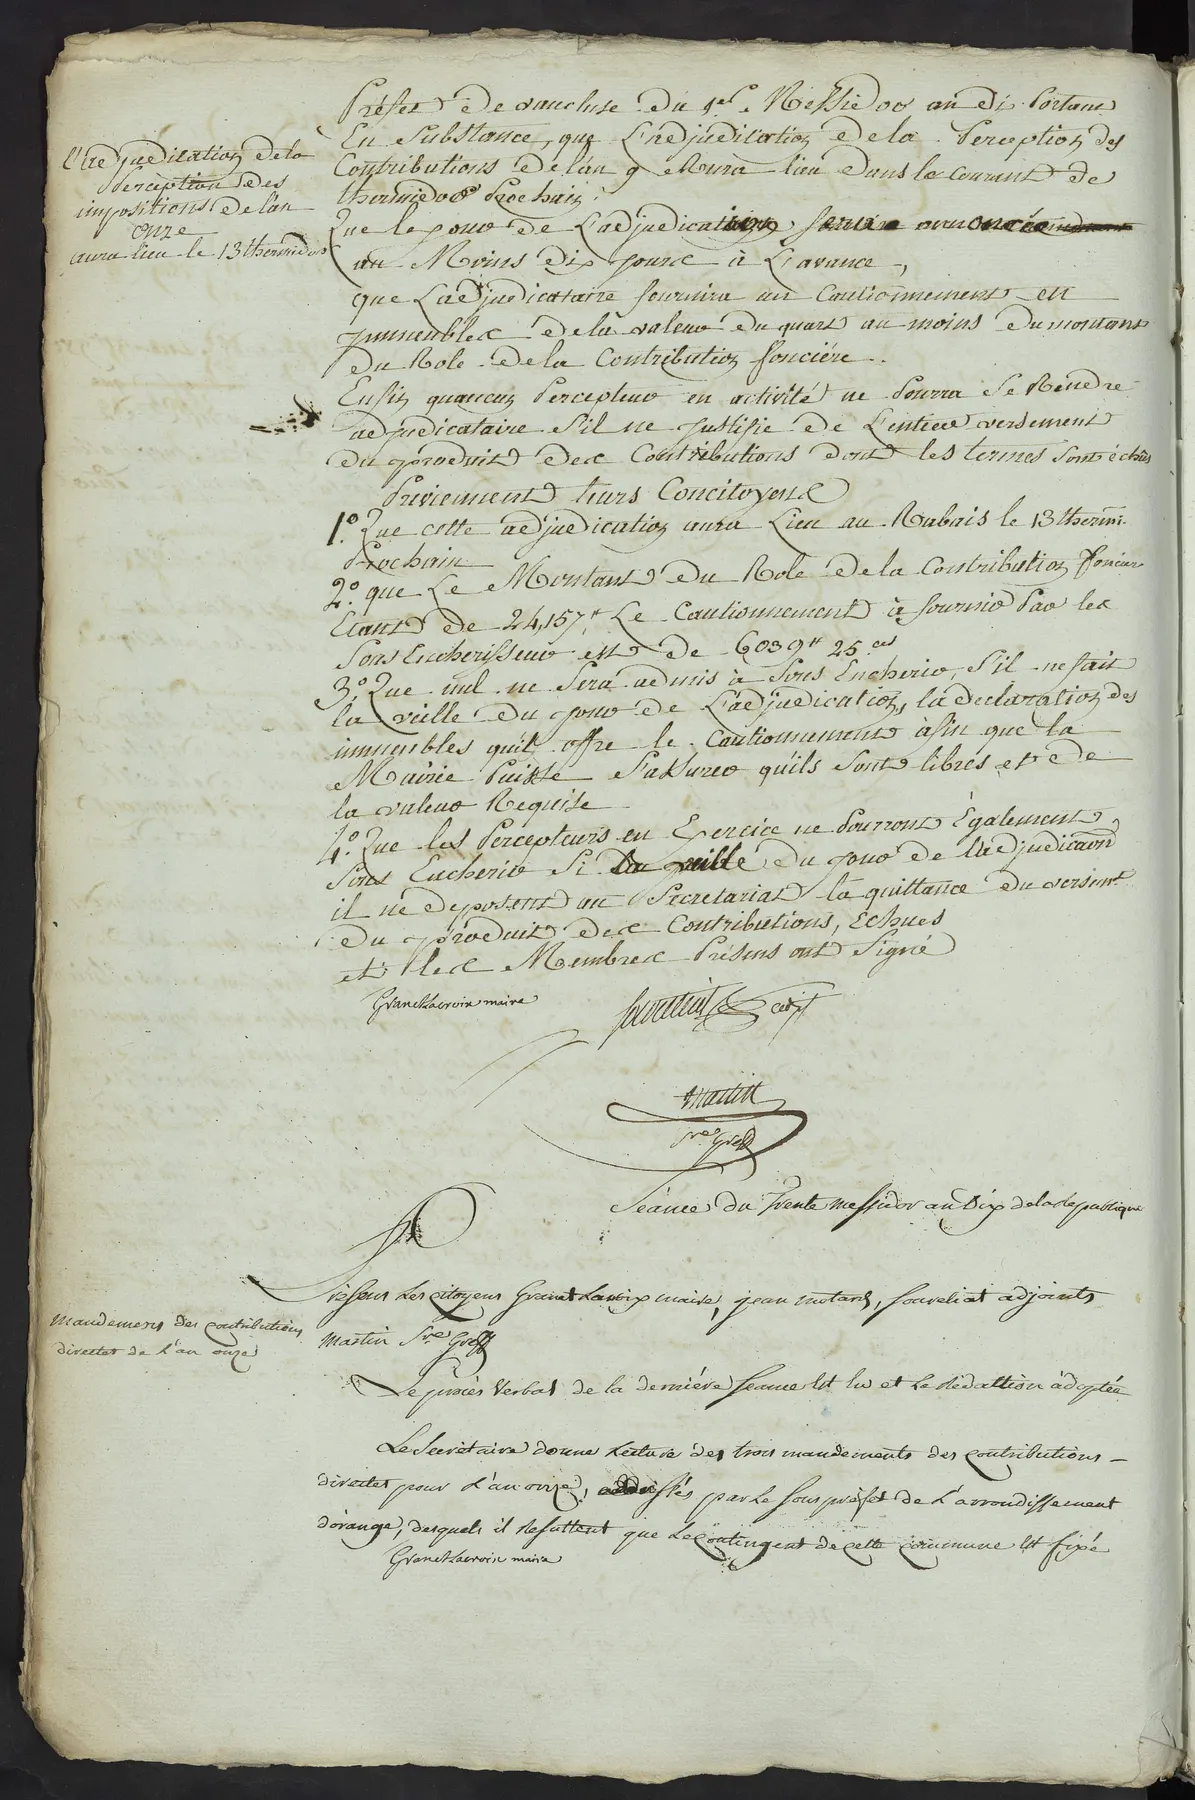 Préfet de vaucluse du 1er. Messidor an dix Portant
En Substance, que L'adjudication de la Perception des
Contributions de l'an 9 Aura lieu dans le Courant de
thermidor Prochain;
Que le jour de L'adjudication sera annoncée
au Moins dix jours à L'avance,
que L'adjudicataire fournira un Cautionnement en
jmmeubles de la valeur du quart au moins du montant
du Role de la Contribution fonciére.
Enfin quaucun Percepteur en activité ne Pourra se Rendre
adjudicataire s'il ne justifie de L'entier versement
du produit des Contributions dont les termes sont échus
Previennent leurs Concitoyens
1.° Que cette adjudication aura Lieu au Rabais le 13 thermi.
Prochain
2.° que Le Montant du Role de la Contribution foncier
Etant de 24,157tt Le Cautionnement à fournir Par les
Sous Encherisseur est de 6039tt 25 ces
3.° Que nul ne Sera admis à Sous Encherir, S'il ne fait
la veille du jour de L'adjudication, la declaration des
immeubles qu'il offre le Cautionnement àfin que la
Mairie Puisse S'assurer qu'ils Sont libres et de
la valeur Requise
4.° Que les Percepteurs en Exercice ne Pourront Egalement
Sous Encherir Si La veille du jour de l'adjudicaon
il ne deposent au Secretariat la quittance du versemt
du produit des Contributions, Echues
et les Membres Présens ont Signé
L'adjudication de la
Perception des
impositions de l'an
onze
aura lieu le 13 thermidor
Granet Lacroix maire
Souveliat adjt
Martin
Sre Greff
Séance du Trente messidor an Dix de la Republique
Présens Les citoyens Granet Lacroix maire, jean motard, souveliat adjoints
Martin Sre Greff
mandemens des contributions
directes de l'an onze
Le procès Verbal de la derniére seance Est lu et la Rédattion àdoptée
Le Secrétaire donne Lecture des trois mandements des contributions
directes pour L'an onze, addressés par Le sous préfet de L'arrondissement
d'orange, desquels il Résultent que Le contingent de cette commune Est fixé
Granet Lacroix maire